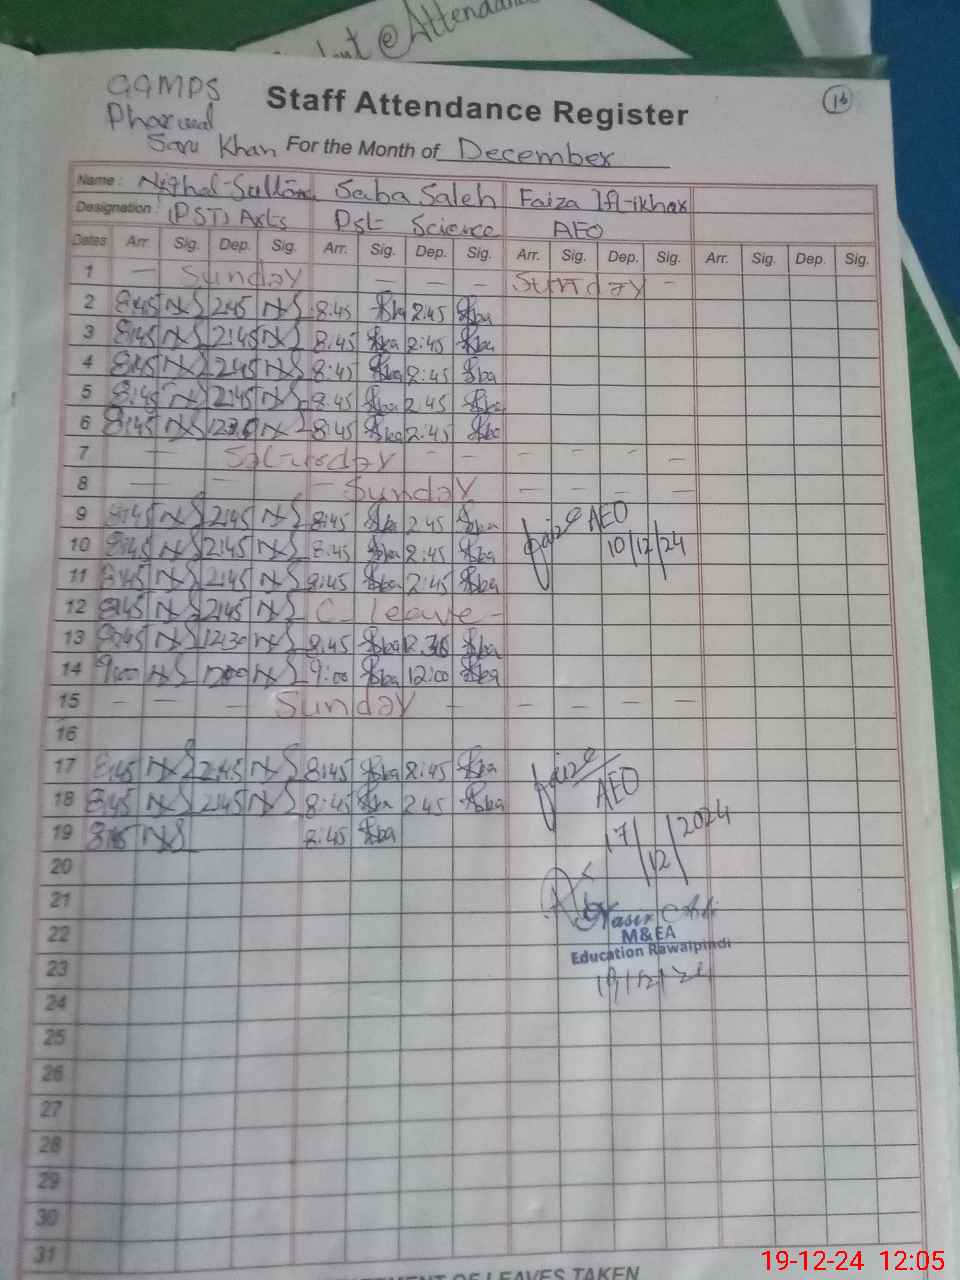 @ Attendance
GGMPS
Staff Attendance Register
16
Pharwal
Saru Khan For the Month of December
Name : Nighat Sultana Saba Saleh Faiza Iftikhar
Designation : (PST) Arts Pst Science AEO
Dates Arr. Sig. Dep. Sig. Arr. Sig. Dep. Sig. Arr. Sig. Dep. Sig. Arr. Sig. Dep. Sig.
1 — Sunday - - - Sunday -
2 8:45 NS 2:45 NS 8:45 Sba 2:45 Sba
3 8:45 NS 2:45 NS 8:45 Sba 2:45 Sba
4 8:45 NS 2:45 NS 8:45 Sba 2:45 Sba
5 8:45 NS 2:45 NS 8:45 Sba 2:45 Sba
6 8:45 NS 12:30 NS 8:45 Sba 2:45 Sba
7 — Saturday - - - - - -
8 — - - Sunday - - - -
9 8:45 NS 2:45 NS 8:45 Sba 2:45 Sba Faiza AEO
10 8:45 NS 2:45 NS 8:45 Sba 2:45 Sba 10/12/24
11 8:45 NS 2:45 NS 8:45 Sba 2:45 Sba
12 8:45 NS 2:45 NS C Leave -
13 8:45 NS 12:30 NS 8:45 Sba Sba
14 9:00 NS 12:00 NS 9:00 Sba 12:00 Sba
15 - - - Sunday - - - - -
16
17 8:45 NS 2:45 NS 8:45 Sba 2:45 Sba Faiza
18 8:45 NS 2:45 NS 8:45 Sba 2:45 Sba AEO
19 8:45 NS Sba 17/12/2024
20
21
Yasir
22
M&EA
Education Rawalpindi
23
19/12/24
24
25
26
27
28
29
30
31
OF LEAVES TAKEN
19-12-24 12:05